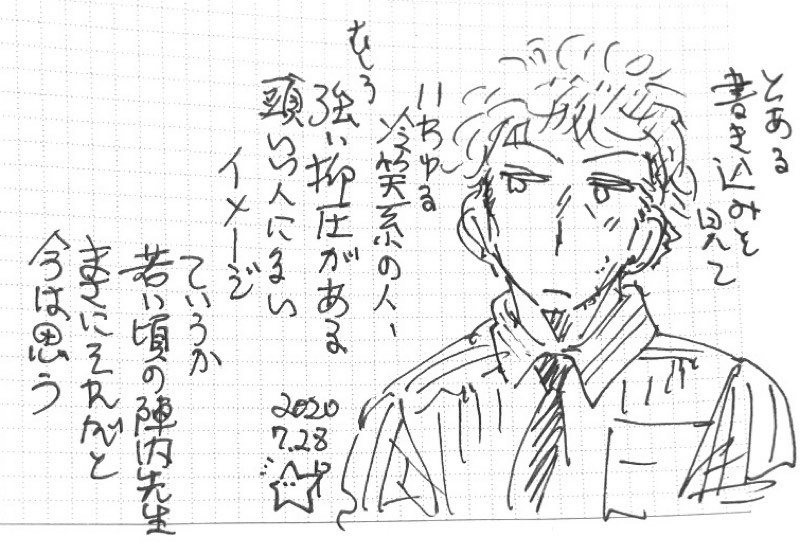 とある
書き込みを見て
いわゆる
冷笑系の人、
むしろ
強い抑圧がある
頭いい人に多い
イメージ
ていうか
若い頃の陣内先生
まさにそれだと
今は思う
2020
7.28